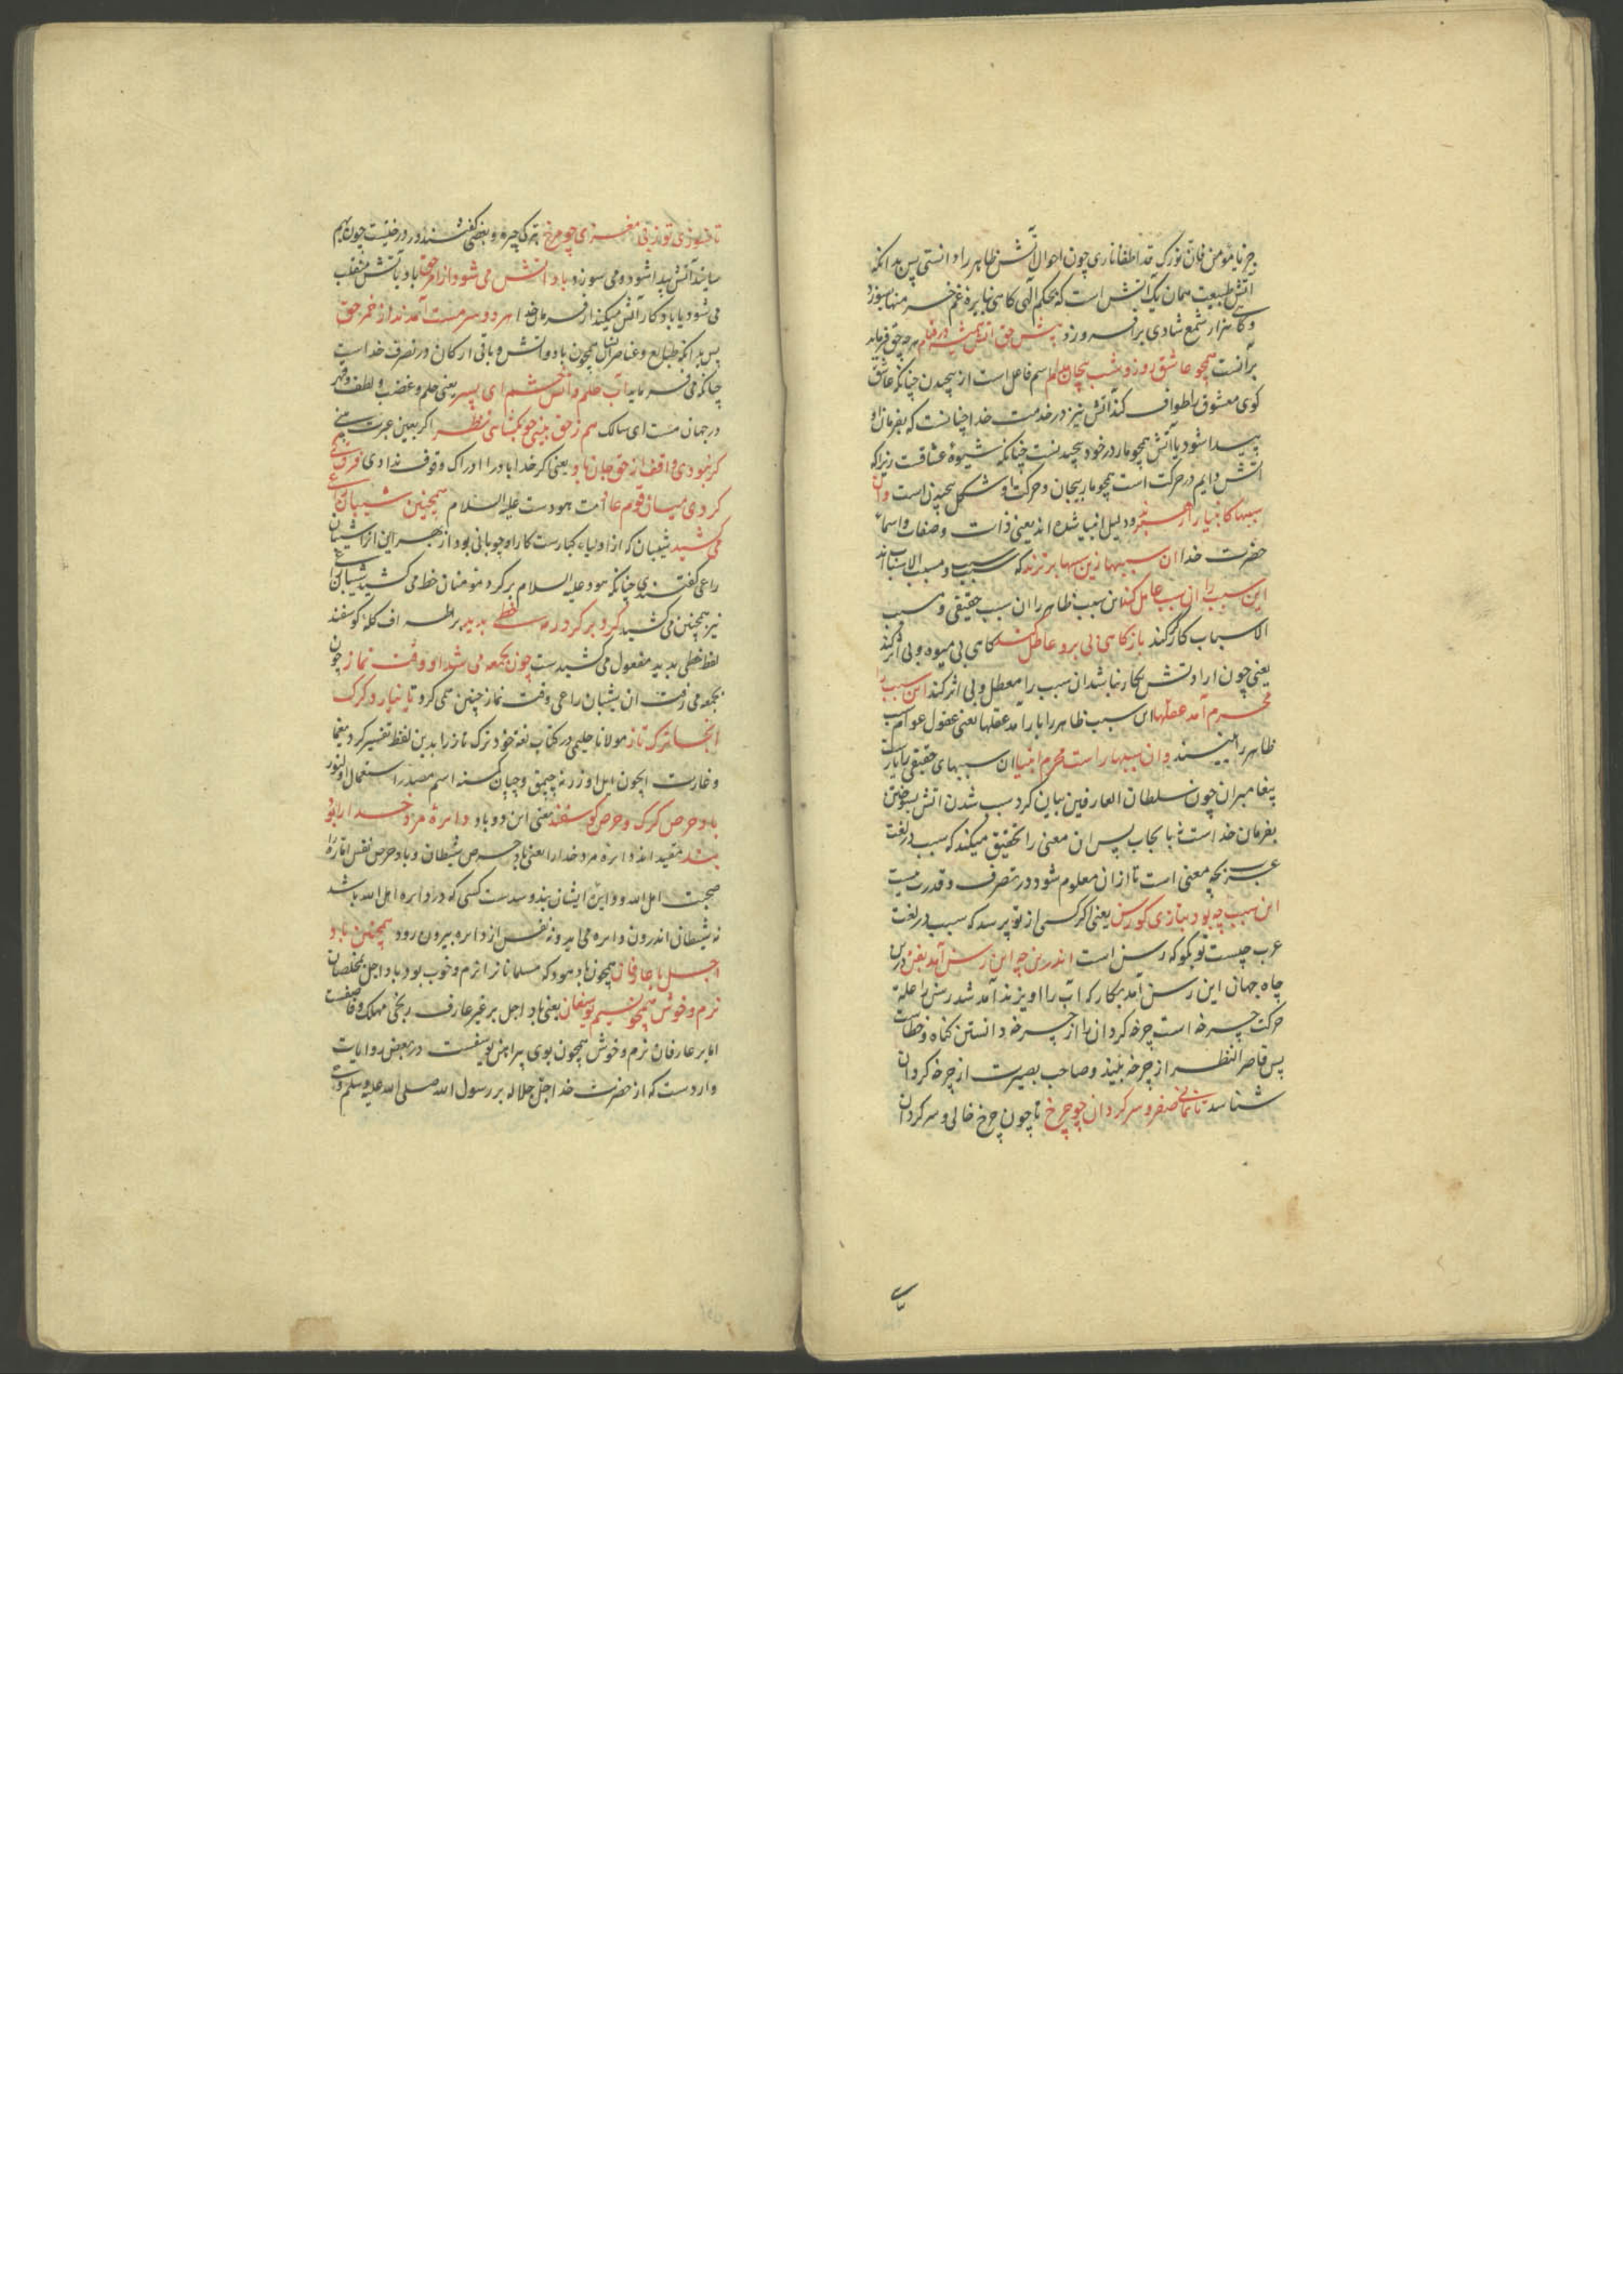 جز یا مؤمن فان نورک قد اطفا ناری چون احوال آتش ظاهر را دانستی پس بدانکه
آتش طبیعت همان یک آتش است که بحکم الهی کاهی نهایره غم خرمنها بسوزد
و کاهی هزار شمع شادی برافروزد پیش حق آتش همیشه در قیام هرچه حق فرماید
برآنست همچو عاشق روز و شب پیچان مدام اسم فاعل است از پیچیدن چنانکه عاشق
کوی معشوق را طواف کند آتش نیز در خدمت خدا چنانست که بفرمان او
پیدا شود یا آتش همچو مار در خود پیچیدنست چنانکه شیوه عشاقست زیراکه
آتش دایم در حرکت است همچو مار پیچان و حرکت او شکل پیچیدن است وان
سببها کانبیا را رهبرند و دلیل انبیا شده اند یعنی ذات و صفات و اسماء
حضرت خدا ان سببها زین سببها برترند که سبب و مسبب الاسباب اند
این سبب را ان سبب عامل کند این سبب ظاهر را ان سبب حقیقی و مسبب
الاسباب کارکر کند باز کاهی بی بر و عاطل کند کاهی بی میوه و بی اثر کند
یعنی چون ارادتش بکار نباشد ان سبب را معطل و بی اثر کند این سبب را
محرم آمد عقلها این سبب ظاهر را یار آمد عقلها یعنی عقول عوام سبب
ظاهر را بینند وان سببها راست محرم انبیا ان سببهای حقیقی را یارست
پیغامبران چون سلطان العارفین بیان کرد سبب شدن آتش بسوختن
بفرمان خداست نه بایجاب پس ان معنی را تحقیق میکند که سبب در لغت
عرب بچه معنی است تا ازان معلوم شود در تصرف و قدرت نیست
این سبب چه بود بتازی کو رسن یعنی اکر کسی از تو پرسد که سبب در لغت
عرب چیست تو بکو که رسن است اندرین چه این رسن آمد بفن درین
چاه جهان این رسن آمد بکار که آب را آویزند آمد شد رسن را علة
حرکت چرخه است چرخه کردان را از چرخه دانستن کناه و خطاست
پس قاصر النظر از چرخه بیند و صاحب بصیرت از چرخه کردان
شناسد تا نمانی صفر و سرکردان چو چرخ تا چون چرخ خالی و سرکردان
تا نسوزی تو ز بی مغزی چو مرخ بترکی چیره و بعضی کفتند در درختیست چون بهم
سایند آتش پیدا شود و می سوزد باد آتش می شود از امر حق باد بآتش منقلب
می شود یا باد کار آتش میکند از فرمان خدا هر دو سرمست آمدند از خمر حق
پس بدانکه طبایع و عناصر امثال همچون باد و آتش و باقی ارکان در تصرف خداست
چنانکه می فرماید آب حلم و آتش خشم ای پسر یعنی حلم و غضب و لطف و قهر
در جهان هست ای سالک هم ز حق بینی چو بکشایی نظر اکر بعین عبرت بینی
کر نبودی واقف از حق جان باد یعنی اکر خدا باد را ادراک و وقوف ندادی فرق کی
کردی میان قوم عاد امت هودست علیه السلام همچنین شیبان راعی
می کشید شیبان که از اولیاء کبارست کار او چوبانی بود از بهر این او را شیبان
راعی کفتندی چنانکه هود علیه السلام بر کرد مؤمنان خط می کشید شیبان راعی
نیز همچنین می کشید کرد بر کرد رمه خطی پدید بر اطراف کله کوسفند
لفظ خطی پدید مفعول می کشیدست چون بجمعه می شد او وقت نماز چون
بجمعه می رفت ان شیبان راعی وقت نماز چنین می کرد تا نیارد کرک
آنجا ترک تاز مولانا حلیمی در کتاب لغه خود ترک تاز را بدین لفظ تفسیر کرد یغما
و غارت ایچون ایل اوزرنه چیقمق و چپان کسنه اسم مصدر استعمال اولنور
باد حرص کرک و حرص کوسفند یعنی این دو باد دایره مرد خدا را بود
بند مقید اند دایره مرد خدا را یعنی باد حرص شیطان و باد حرص نفس اماره را
صحبت اهل الله و دایره ایشان بند و سدست کسی که در دایره اهل الله باشد
نه شیطان اندرون دایره می آید و نه نفس از دایره بیرون رود همچنین باد
اجل با عارفان همچون باد هود که مسلمانانرا نرم و خوب بود باد اجل بمخلصان
نرم و خوش همچون نسیم یوسفان یعنی باد اجل بر غیر عارف بتلخی مهلک و قاصفست
اما بر عارفان نرم و خوش همچون بوی پیراهن یوسفست در بعض روایات
واردست که از حضرت خدا جل جلاله بر رسول الله صلی الله علیه وسلم